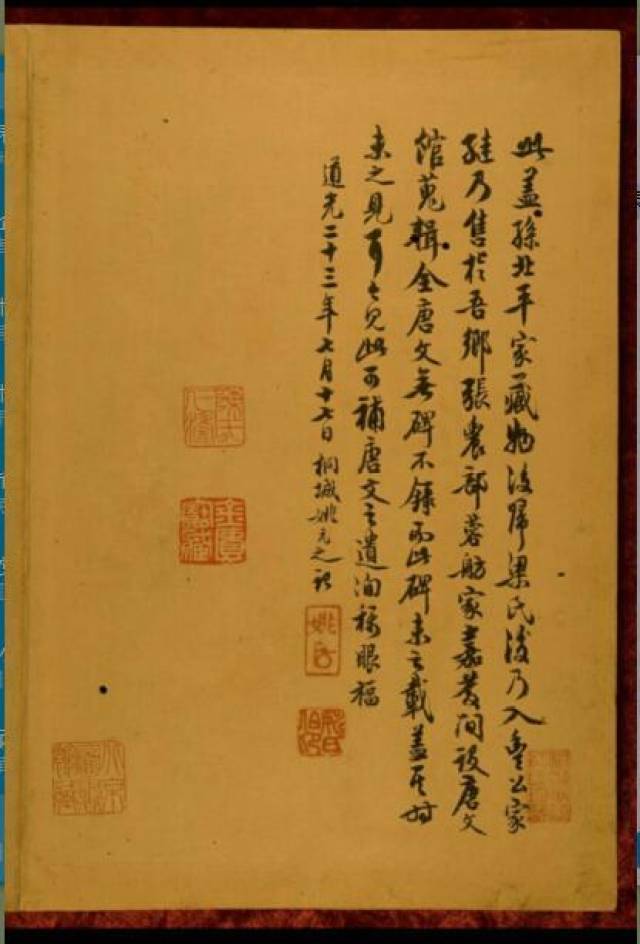 此蓋孫北平家藏物後歸梁氏後乃入公家
繼乃售於吾鄉張農部蓉舫家嘉慶間設唐文
館蒐輯全唐文無碑不錄而此碑未之載蓋其時
未之見耳見此可補唐文之遺洵稱眼福
道光二十三年七月十七日桐城姚元之記
姚氏伯昂